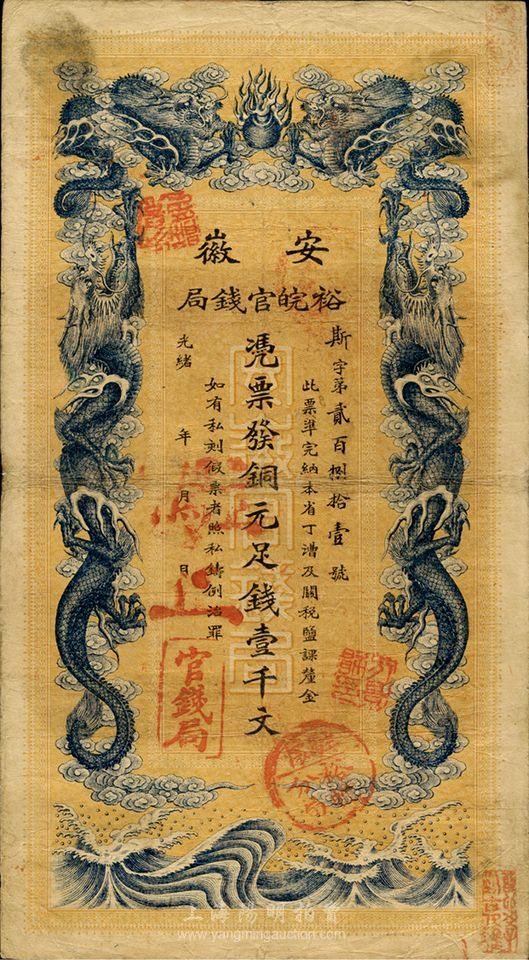 安徽
裕皖官錢局
斯字第貳百捌拾壹號
此票準完納本省丁漕及關稅鹽課釐金
憑票發銅元足錢壹千文
如有私刻假票者照私鑄例治罪
光緒 年 月 日
官錢局
上海陽明拍賣
www.yangmingauction.com